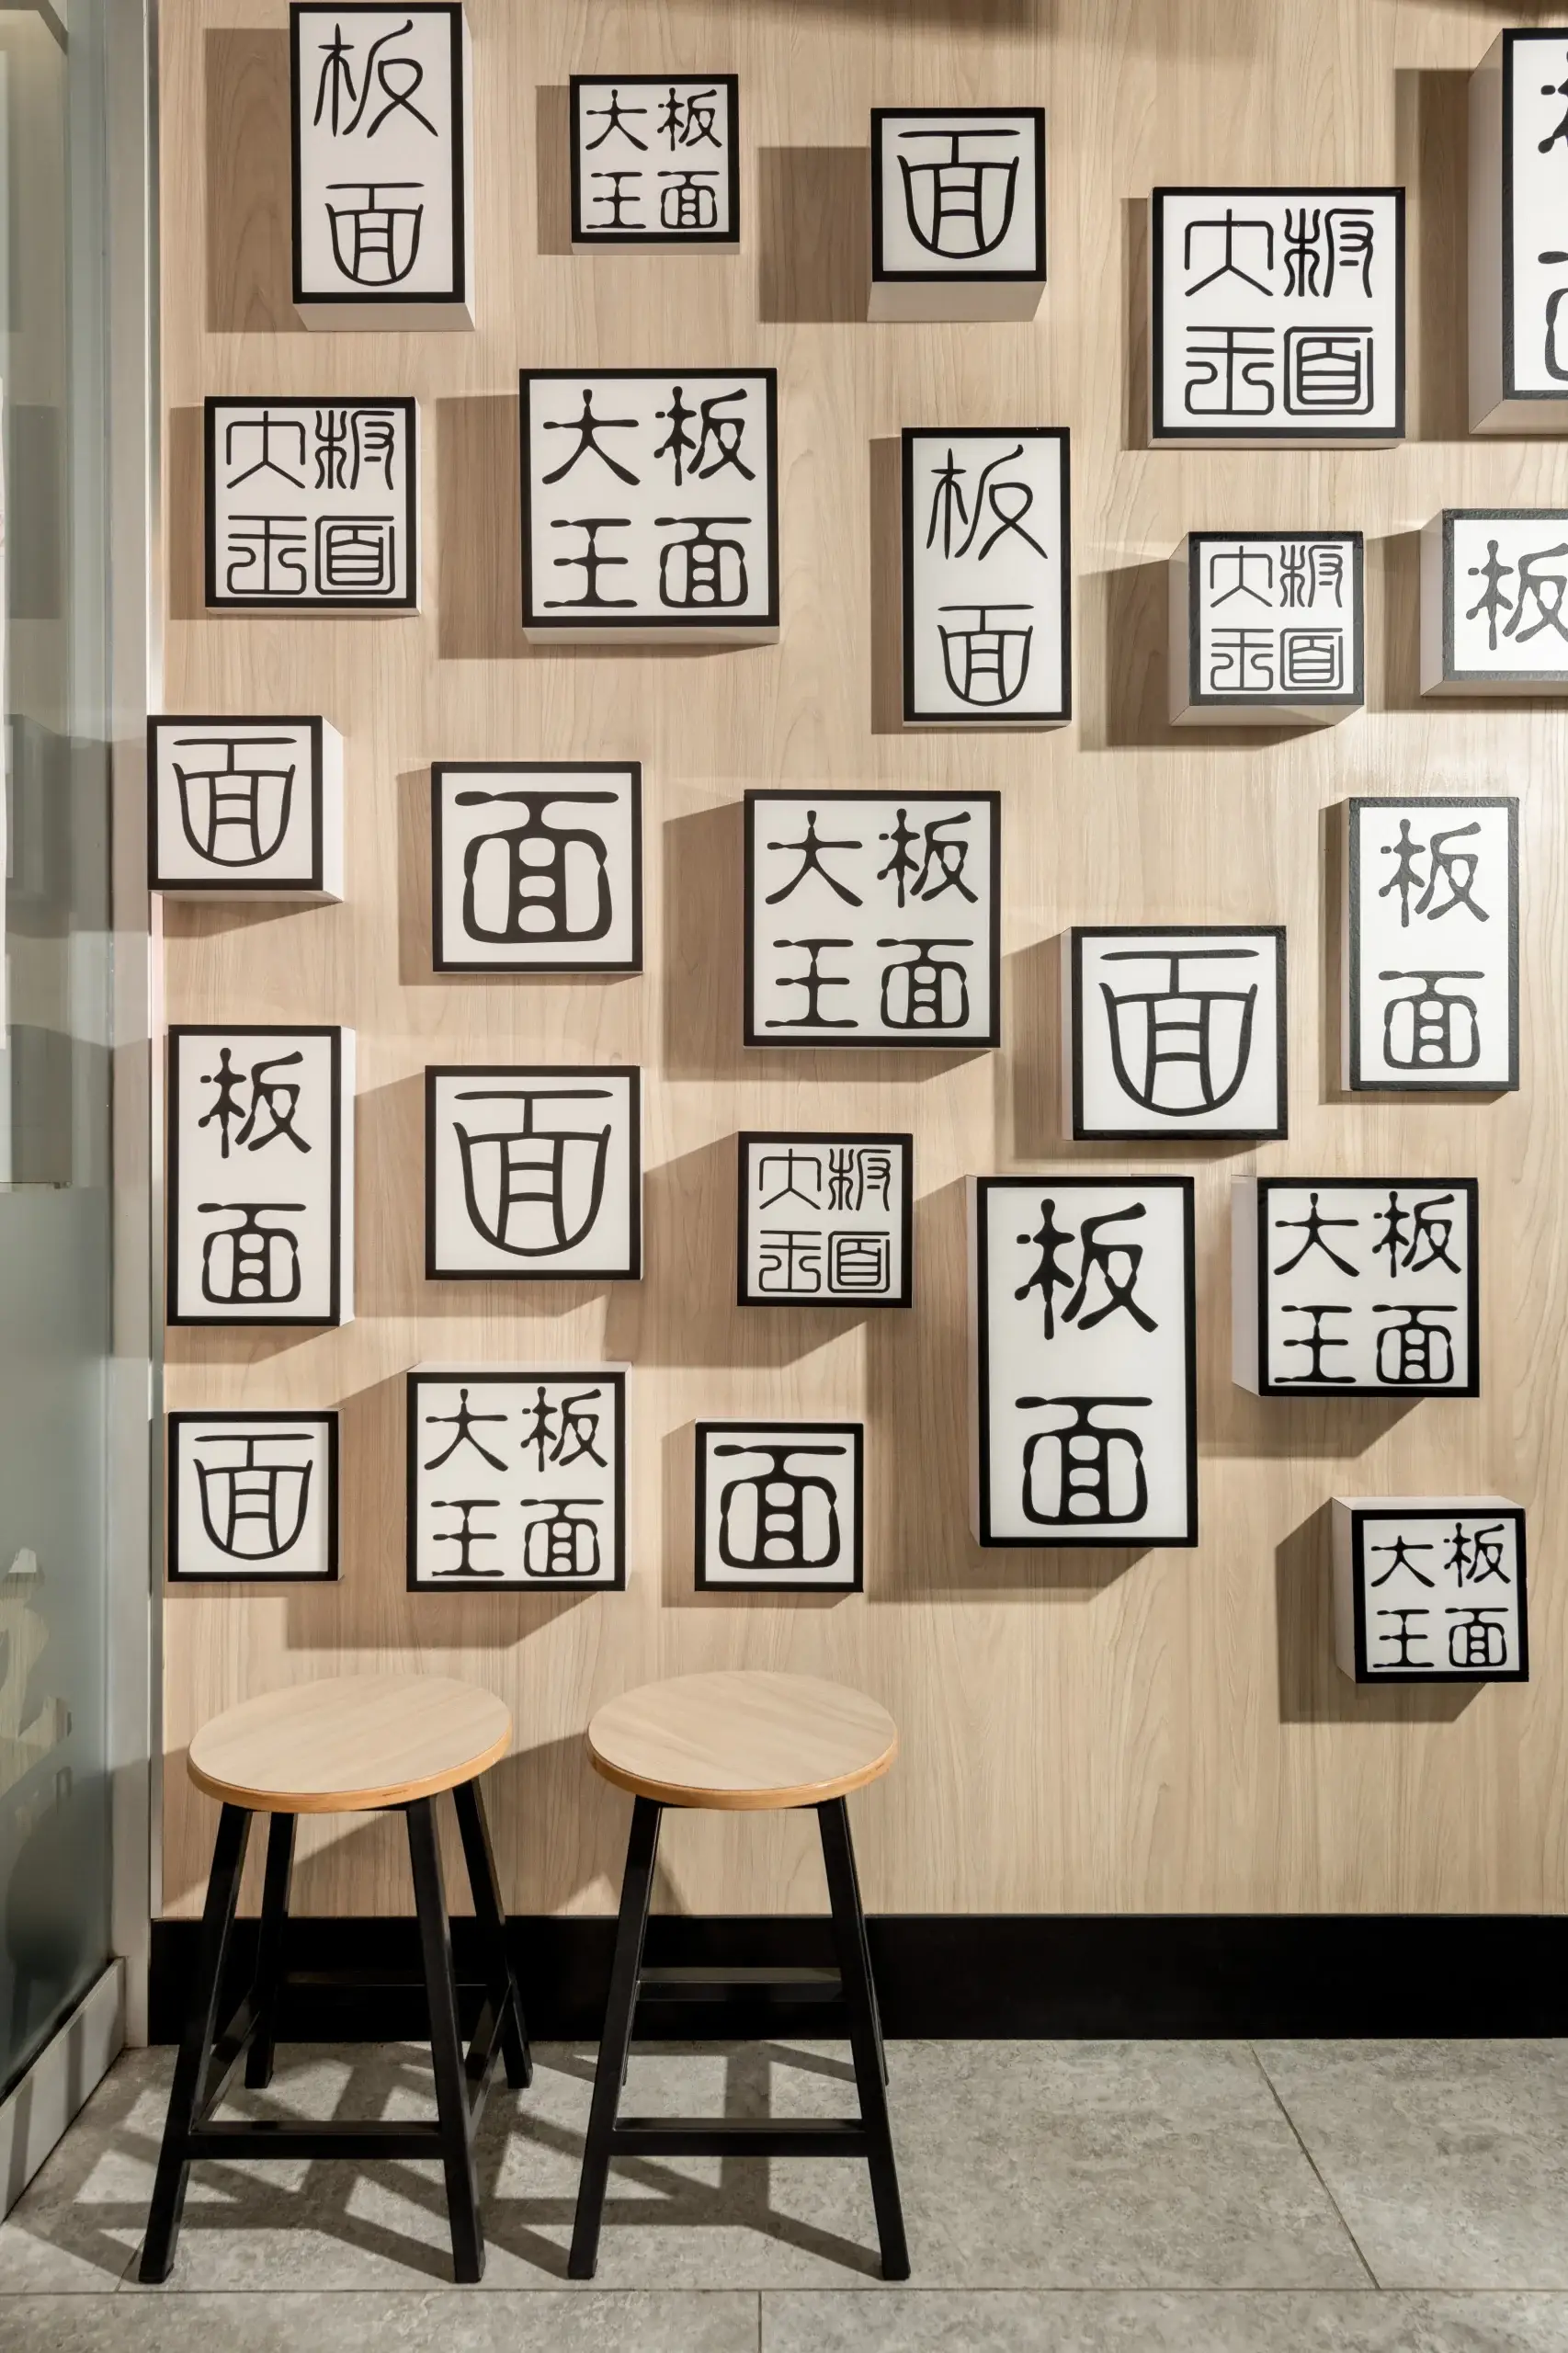 板面
板面
大王
面
板面
大王
板面
大王
板面
大王
板面
板面
大王
板
面
面
板面
大王
面
板面
板面
面
板面
大王
板面
板面
大王
面
板面
大王
面
板面
大王